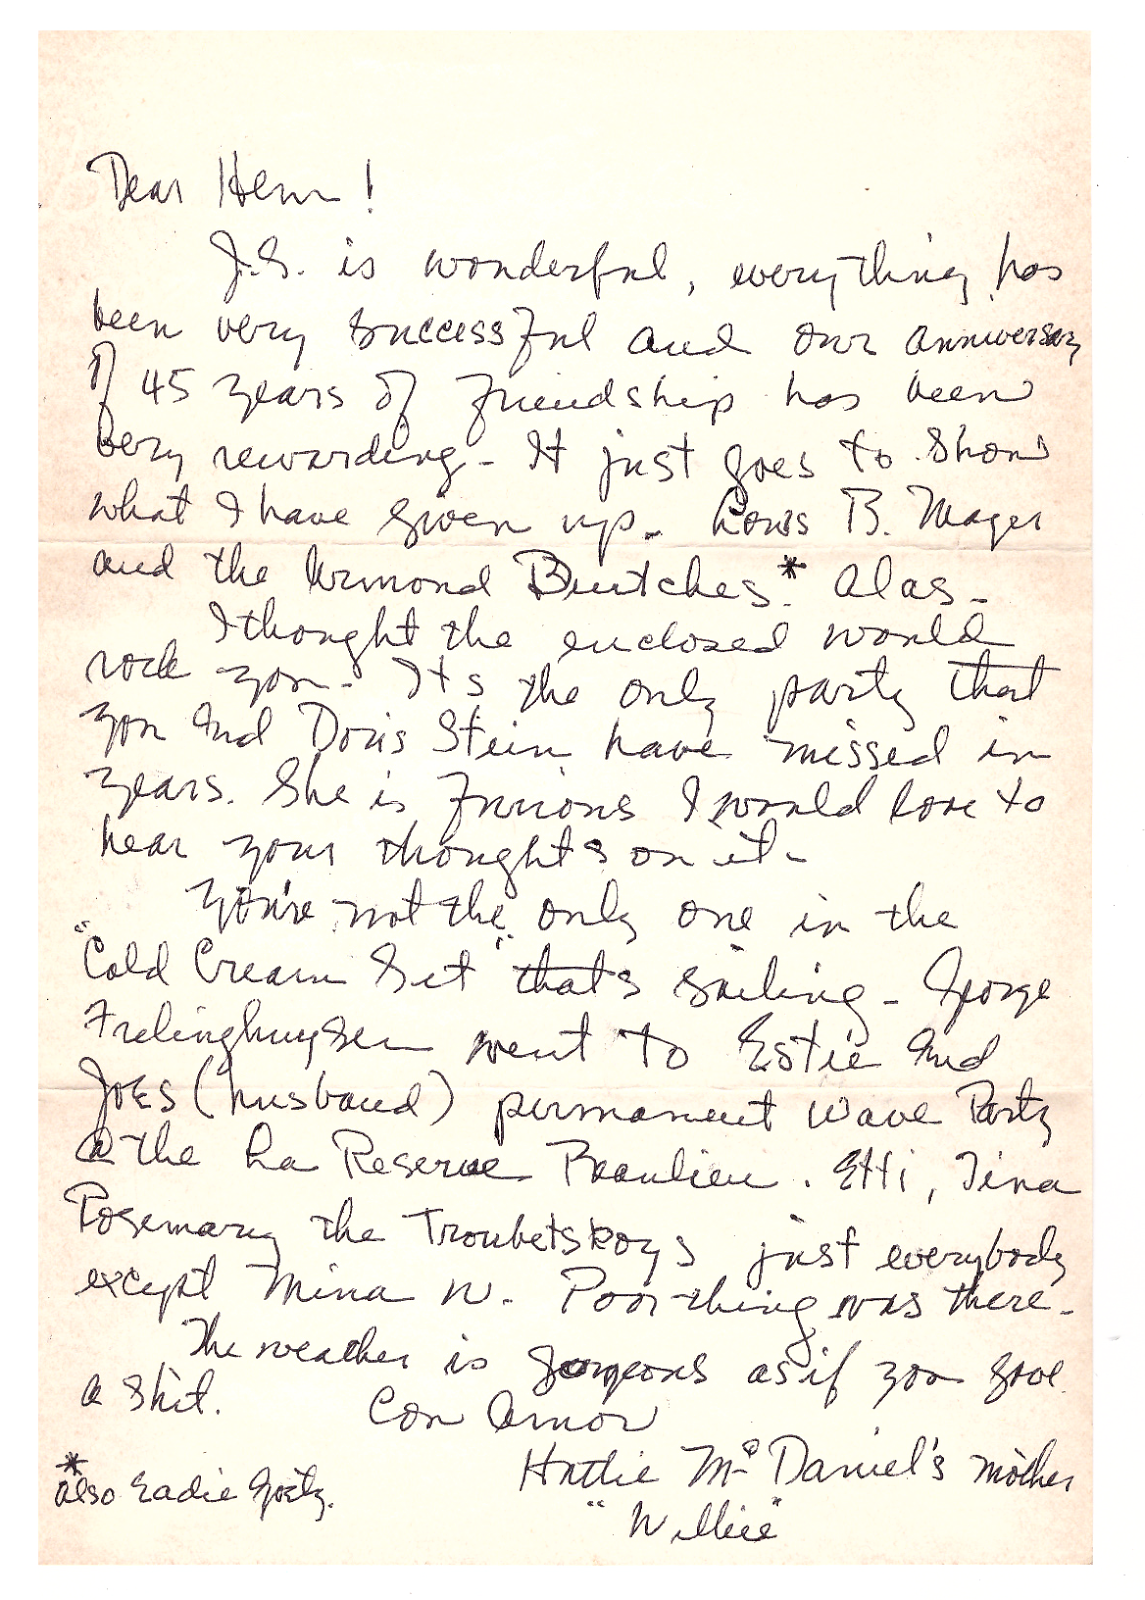 Dear Hem!
J.S. is wonderful, everything has
been very successful and our anniversary
of 45 years of friendship has been
very rewarding - It just goes to show
what I have given up. Louis B. Mayer
and the Armond Deutches.* Alas -
I thought the enclosed would
rock you - It's the only party that
you and Doris Stein have missed in
years. She is furious I would love to
hear your thoughts on it -
You're not the only one in the
"Cold Cream Set" that's sailing - George
Frelinghuysen went to Estie and
JOES (husband) permanent wave Party
@ the La Reserve Beaulieu. Etti, Tina
Rosemary the Troubetskoys just everybody
except Mina W. Poor thing was there -
The weather is gorgeous as if you give
a shit. Con Amor
Hattie McDaniel's mother
"Willie"
*also Eadie Goetz.